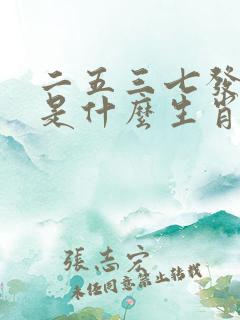 二五三七發
是什麼生肖
張志宏
未任同意禁止转载